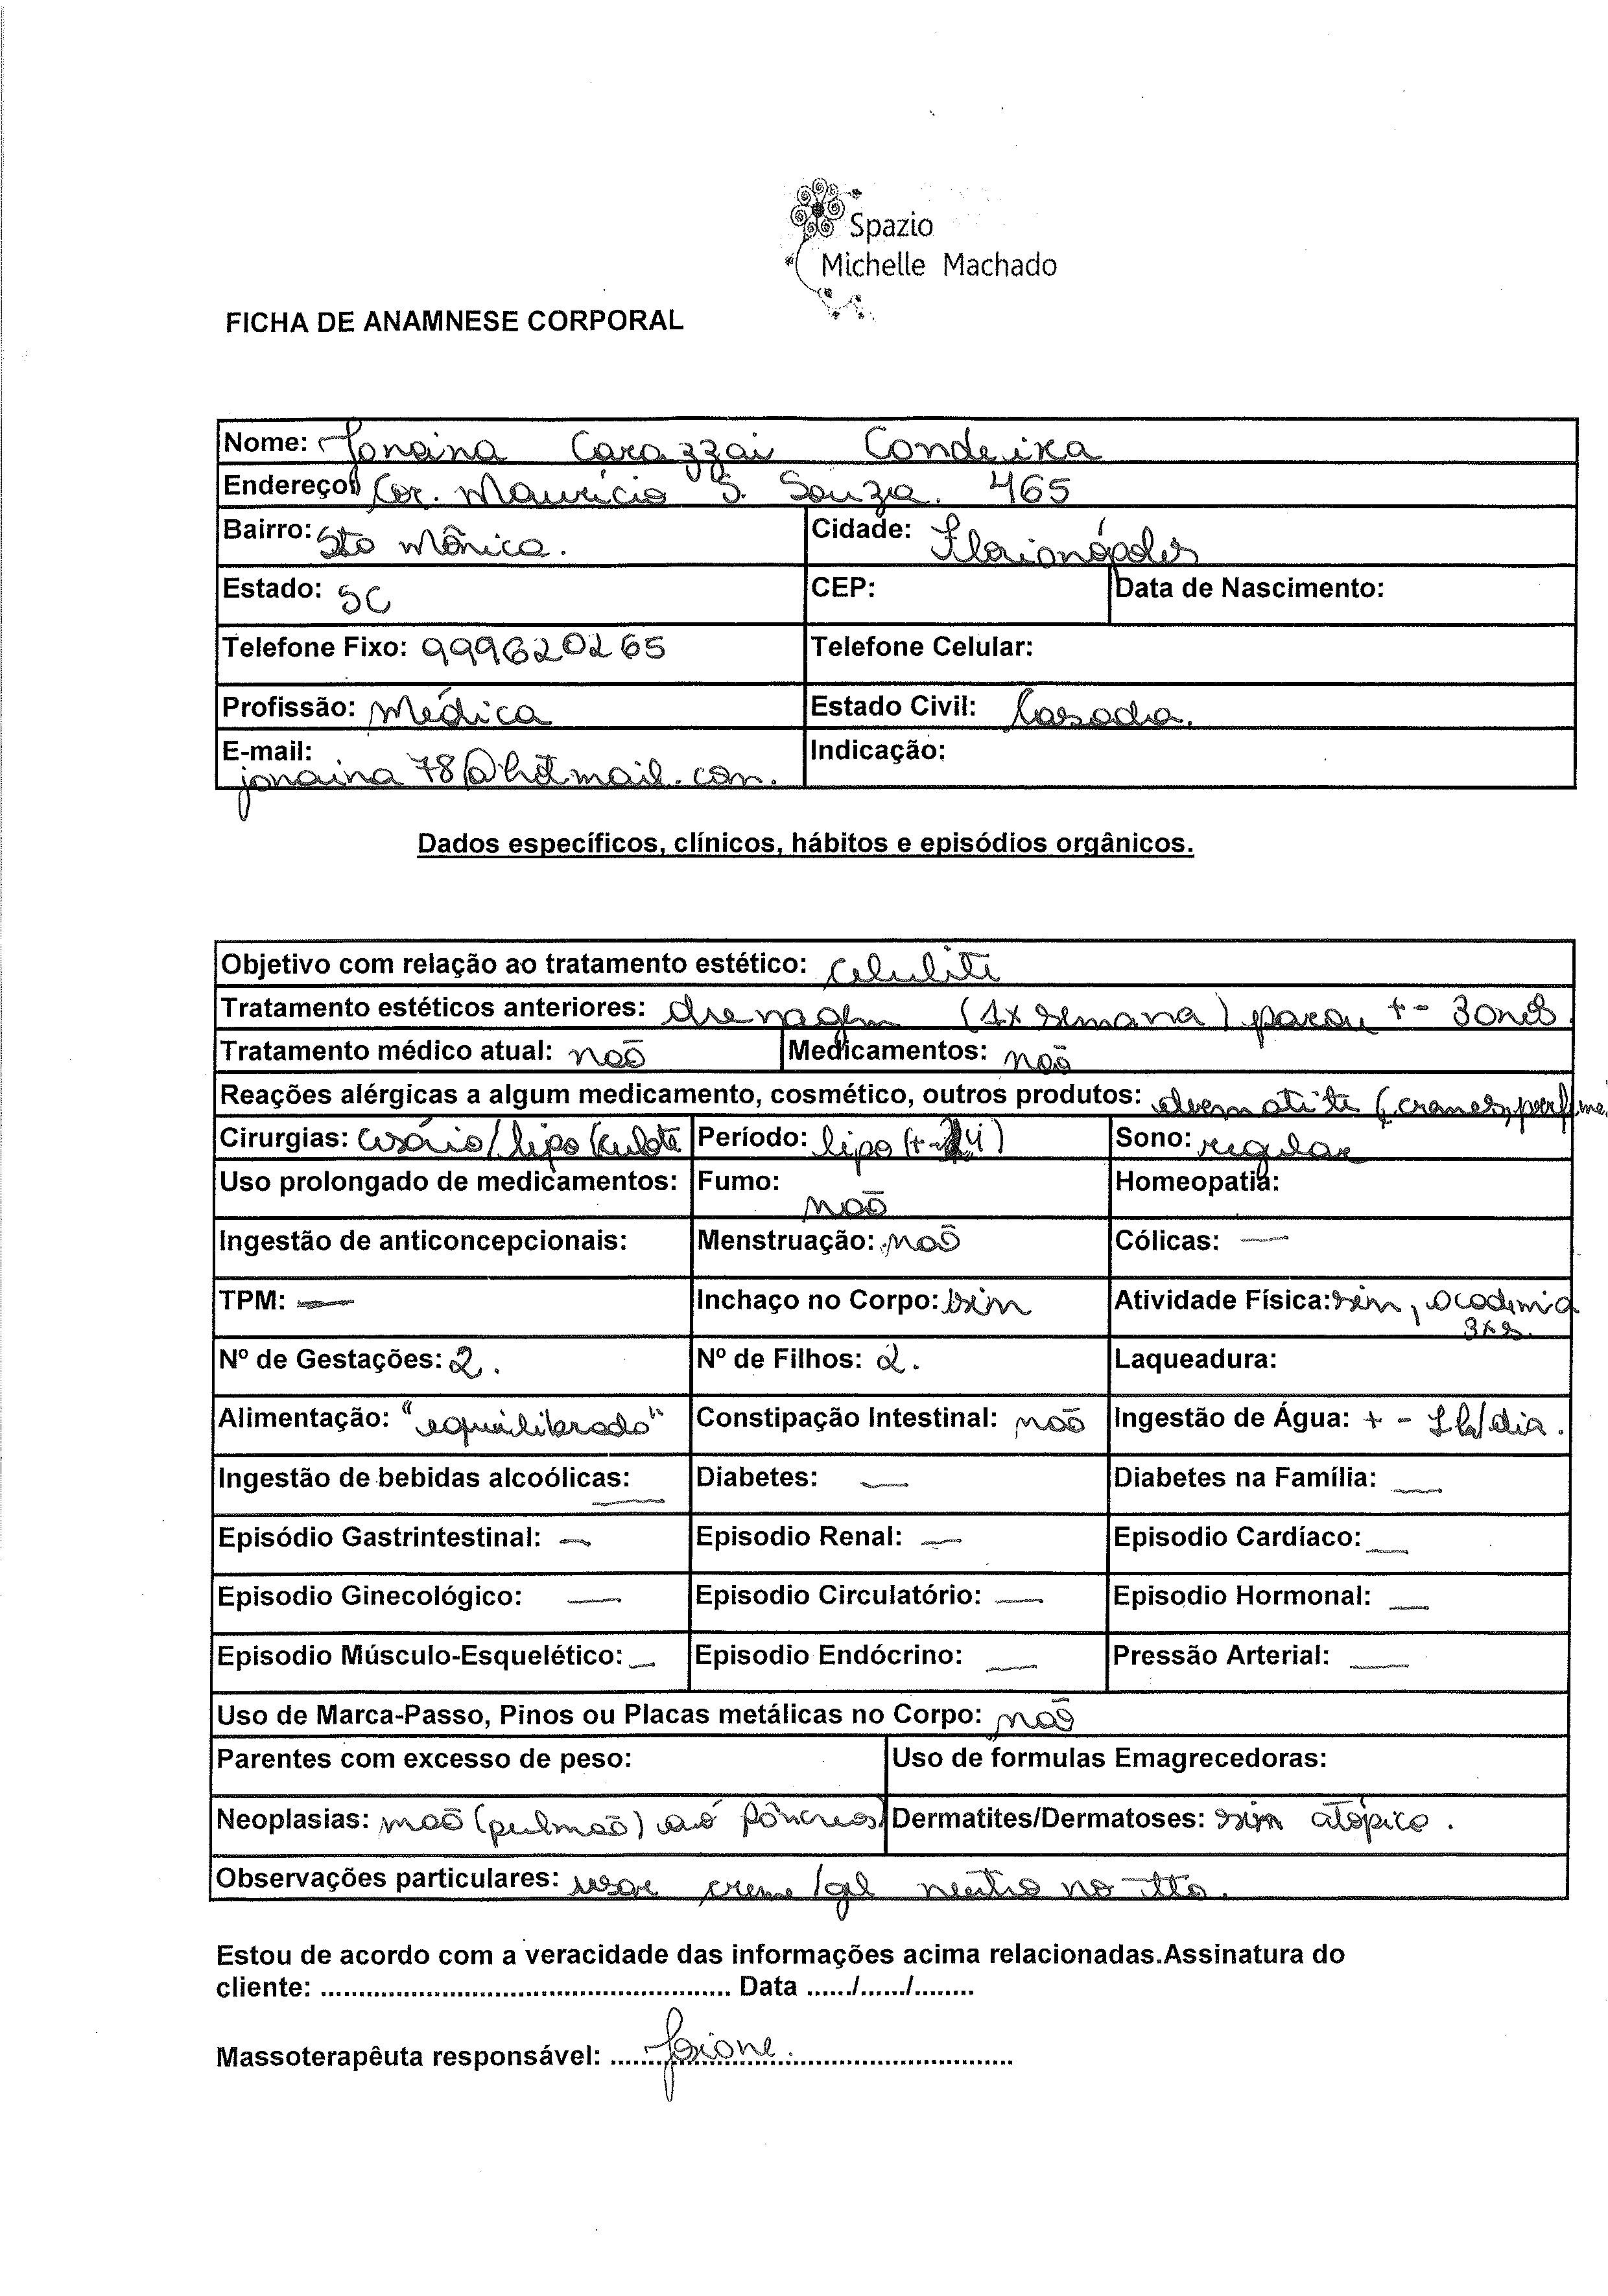 Spazio
Michelle Machado
FICHA DE ANAMNESE CORPORAL
Nome: Janaina Carazzai Condeixa
Endereço: Cor. Mauricio S. Souza. 465
Bairro: Sto Mônica. Cidade: Florianópolis
Estado: SC CEP: Data de Nascimento:
Telefone Fixo: 999620265 Telefone Celular:
Profissão: Médica Estado Civil: Casada.
E-mail: Indicação:
janaina78@hotmail.com.
Dados específicos, clínicos, hábitos e episódios orgânicos.
Objetivo com relação ao tratamento estético: celulite
Tratamento estéticos anteriores: drenagem (1x semana) parou +- 3 anos.
Tratamento médico atual: não Medicamentos: não
Reações alérgicas a algum medicamento, cosmético, outros produtos: dermatite (cremes, perfume,
Cirurgias: cesário/lipo/culote Período: lipo (+- ) Sono: regular
Uso prolongado de medicamentos: Fumo: não Homeopatia:
Ingestão de anticoncepcionais: Menstruação: não Cólicas: —
TPM: — Inchaço no Corpo: sim Atividade Física: sim, academia
3xs.
Nº de Gestações: 2. Nº de Filhos: 2. Laqueadura:
Alimentação: "equilibrado" Constipação Intestinal: não Ingestão de Água: + - 1L/dia.
Ingestão de bebidas alcoólicas: — Diabetes: — Diabetes na Família: —
Episódio Gastrintestinal: — Episodio Renal: — Episodio Cardíaco: —
Episodio Ginecológico: — Episodio Circulatório: — Episodio Hormonal: —
Episodio Músculo-Esquelético: — Episodio Endócrino: — Pressão Arterial: —
Uso de Marca-Passo, Pinos ou Placas metálicas no Corpo: não
Parentes com excesso de peso: Uso de formulas Emagrecedoras:
Neoplasias: não (pulmão) avó pâncreas Dermatites/Dermatoses: sim atópica.
Observações particulares: usar creme/gel neutro no tto.
Estou de acordo com a veracidade das informações acima relacionadas.Assinatura do
cliente: ...................................................... Data ....../....../........
Massoterapêuta responsável: ......Josiane.......................................